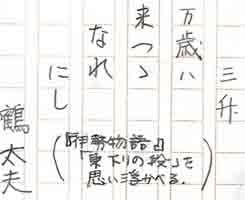 三升
万歳ハ
来つゝ
なれ
にし
鶴太夫
(『伊勢物語』
「東下りの段」を
思い浮かべる.)